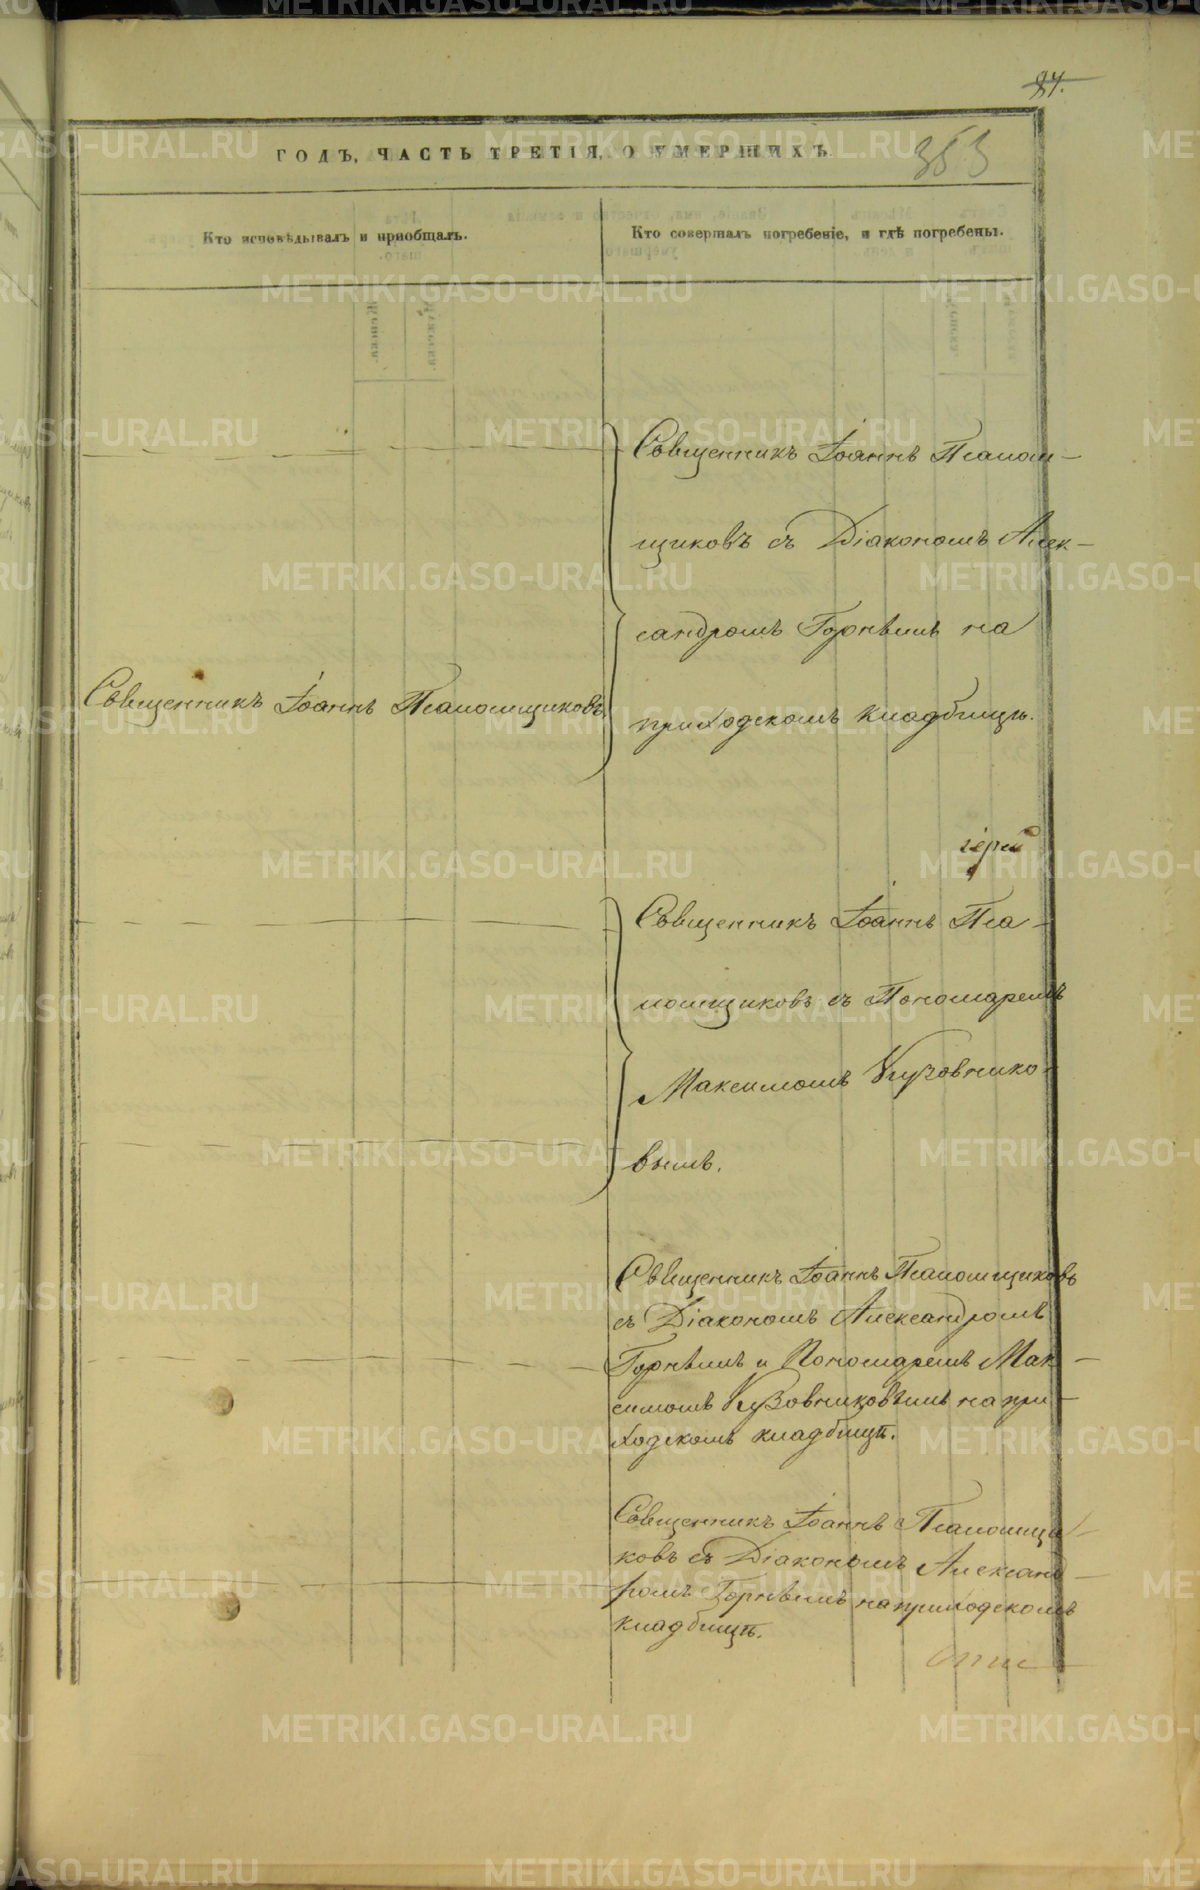 84.
ГОДЪ, ЧАСТЬ ТРЕТІЯ, О УМЕРШИХЪ
353
Кто исповѣдывалъ и приобщалъ.
Кто совершалъ погребеніе, и гдѣ погребены.
Священникъ Іоаннъ Псалом-
щиковъ съ Діакономъ Алек-
сандромъ Горнымъ на
Священникъ Іоаннъ Псаломщиковъ.
приходскомъ кладбищѣ.
іерей
Священникъ Іоаннъ Пса-
ломщиковъ съ Пономаремъ
Максимомъ Кузовнико-
вымъ.
Священникъ Іоаннъ Псаломщиковъ
съ Діакономъ Александромъ
Горнымъ и Пономаремъ Мак-
симомъ Кузовниковымъ на при-
ходскомъ кладбищѣ.
Священникъ Іоаннъ Псаломщи-
ковъ съ Діакономъ Александ-
ромъ Горнымъ на приходскомъ
кладбищѣ.
METRIKI.GASO-URAL.RU